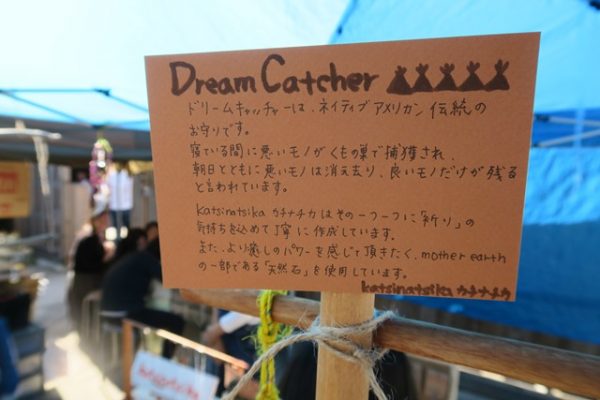 Dream Catcher
ドリームキャッチャーは、ネイティブアメリカン伝統の
お守りです。
寝ている間に悪いモノがくもの巣で捕獲され、
朝日とともに悪いモノは消え去り、良いモノだけが残る
と言われています。
katsinatsika カチナチカはその一つ一つに「祈り」の
気持ちを込めて丁寧に作成しています。
また、より癒しのパワーを感じて頂きたく、mother earth
の一部である「天然石」を使用しています。
katsinatsika カチナチカ